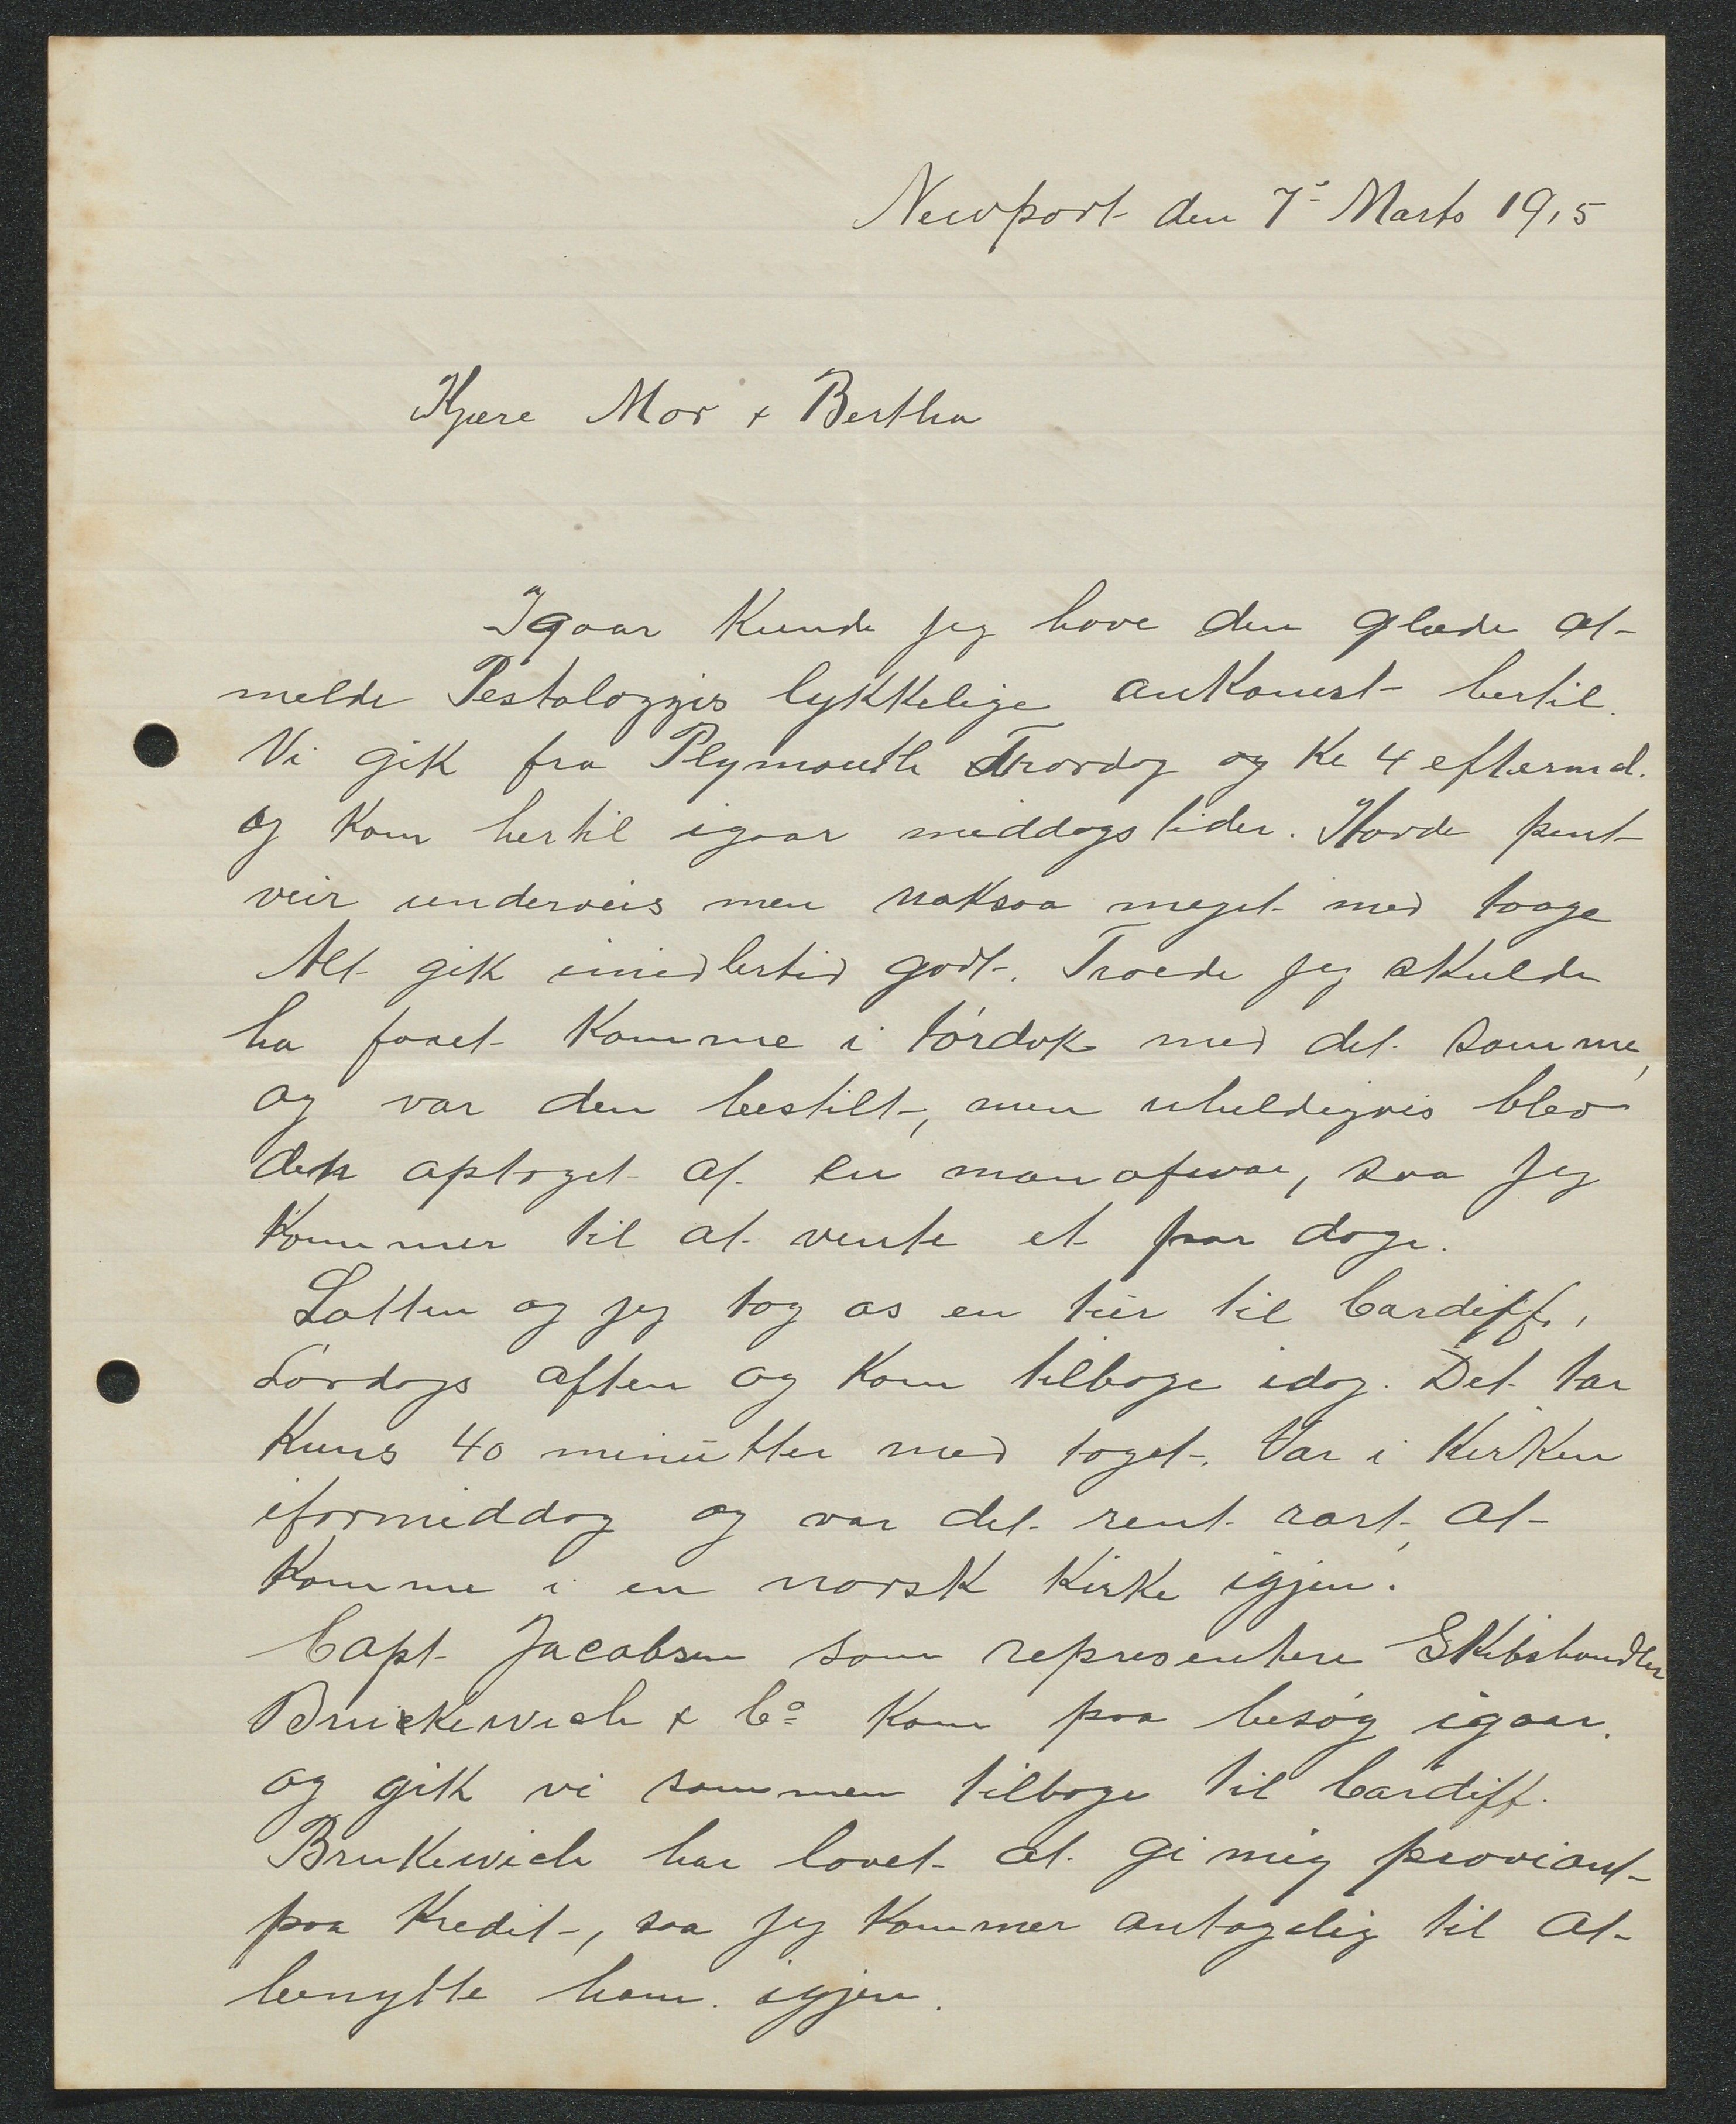 Newport den 7de Marts 1915
Kjære Mor & Bertha
Igaar kunde jeg have den glæde at
melde Pestalozzis lykkelige ankomst hertil.
Vi gik fra Plymouth Torsdag og Kl 4 eftermd.
og kom hertil igaar middagstider. Havde pent
veir underveis men noksaa meget med taage
Alt gik imidlertid godt. Troede jeg skulde
ha faaet komme i tördok med det samme,
og var den bestilt, men uheldigvis blev
den optaget af en manofwar, saa jeg
kommer til at vente et par dage.
Lotten og jeg tog os en tür til Cardiff,
Lördags aften og kom tilbage idag. Det tar
kuns 40 minütter med toget. Var i kirken
iformiddag og var det rent rart, at
komme i en norsk kirke igjen.
Capt Jacobsen som representere Skibshandler
Bruckewich & Co kom paa besög igaar.
og gik vi sammen tilbage til Cardiff.
Brukewich har lovet at gi mig proviant
paa kredit, saa jeg kommer antagelig til at
benytte ham igjen.